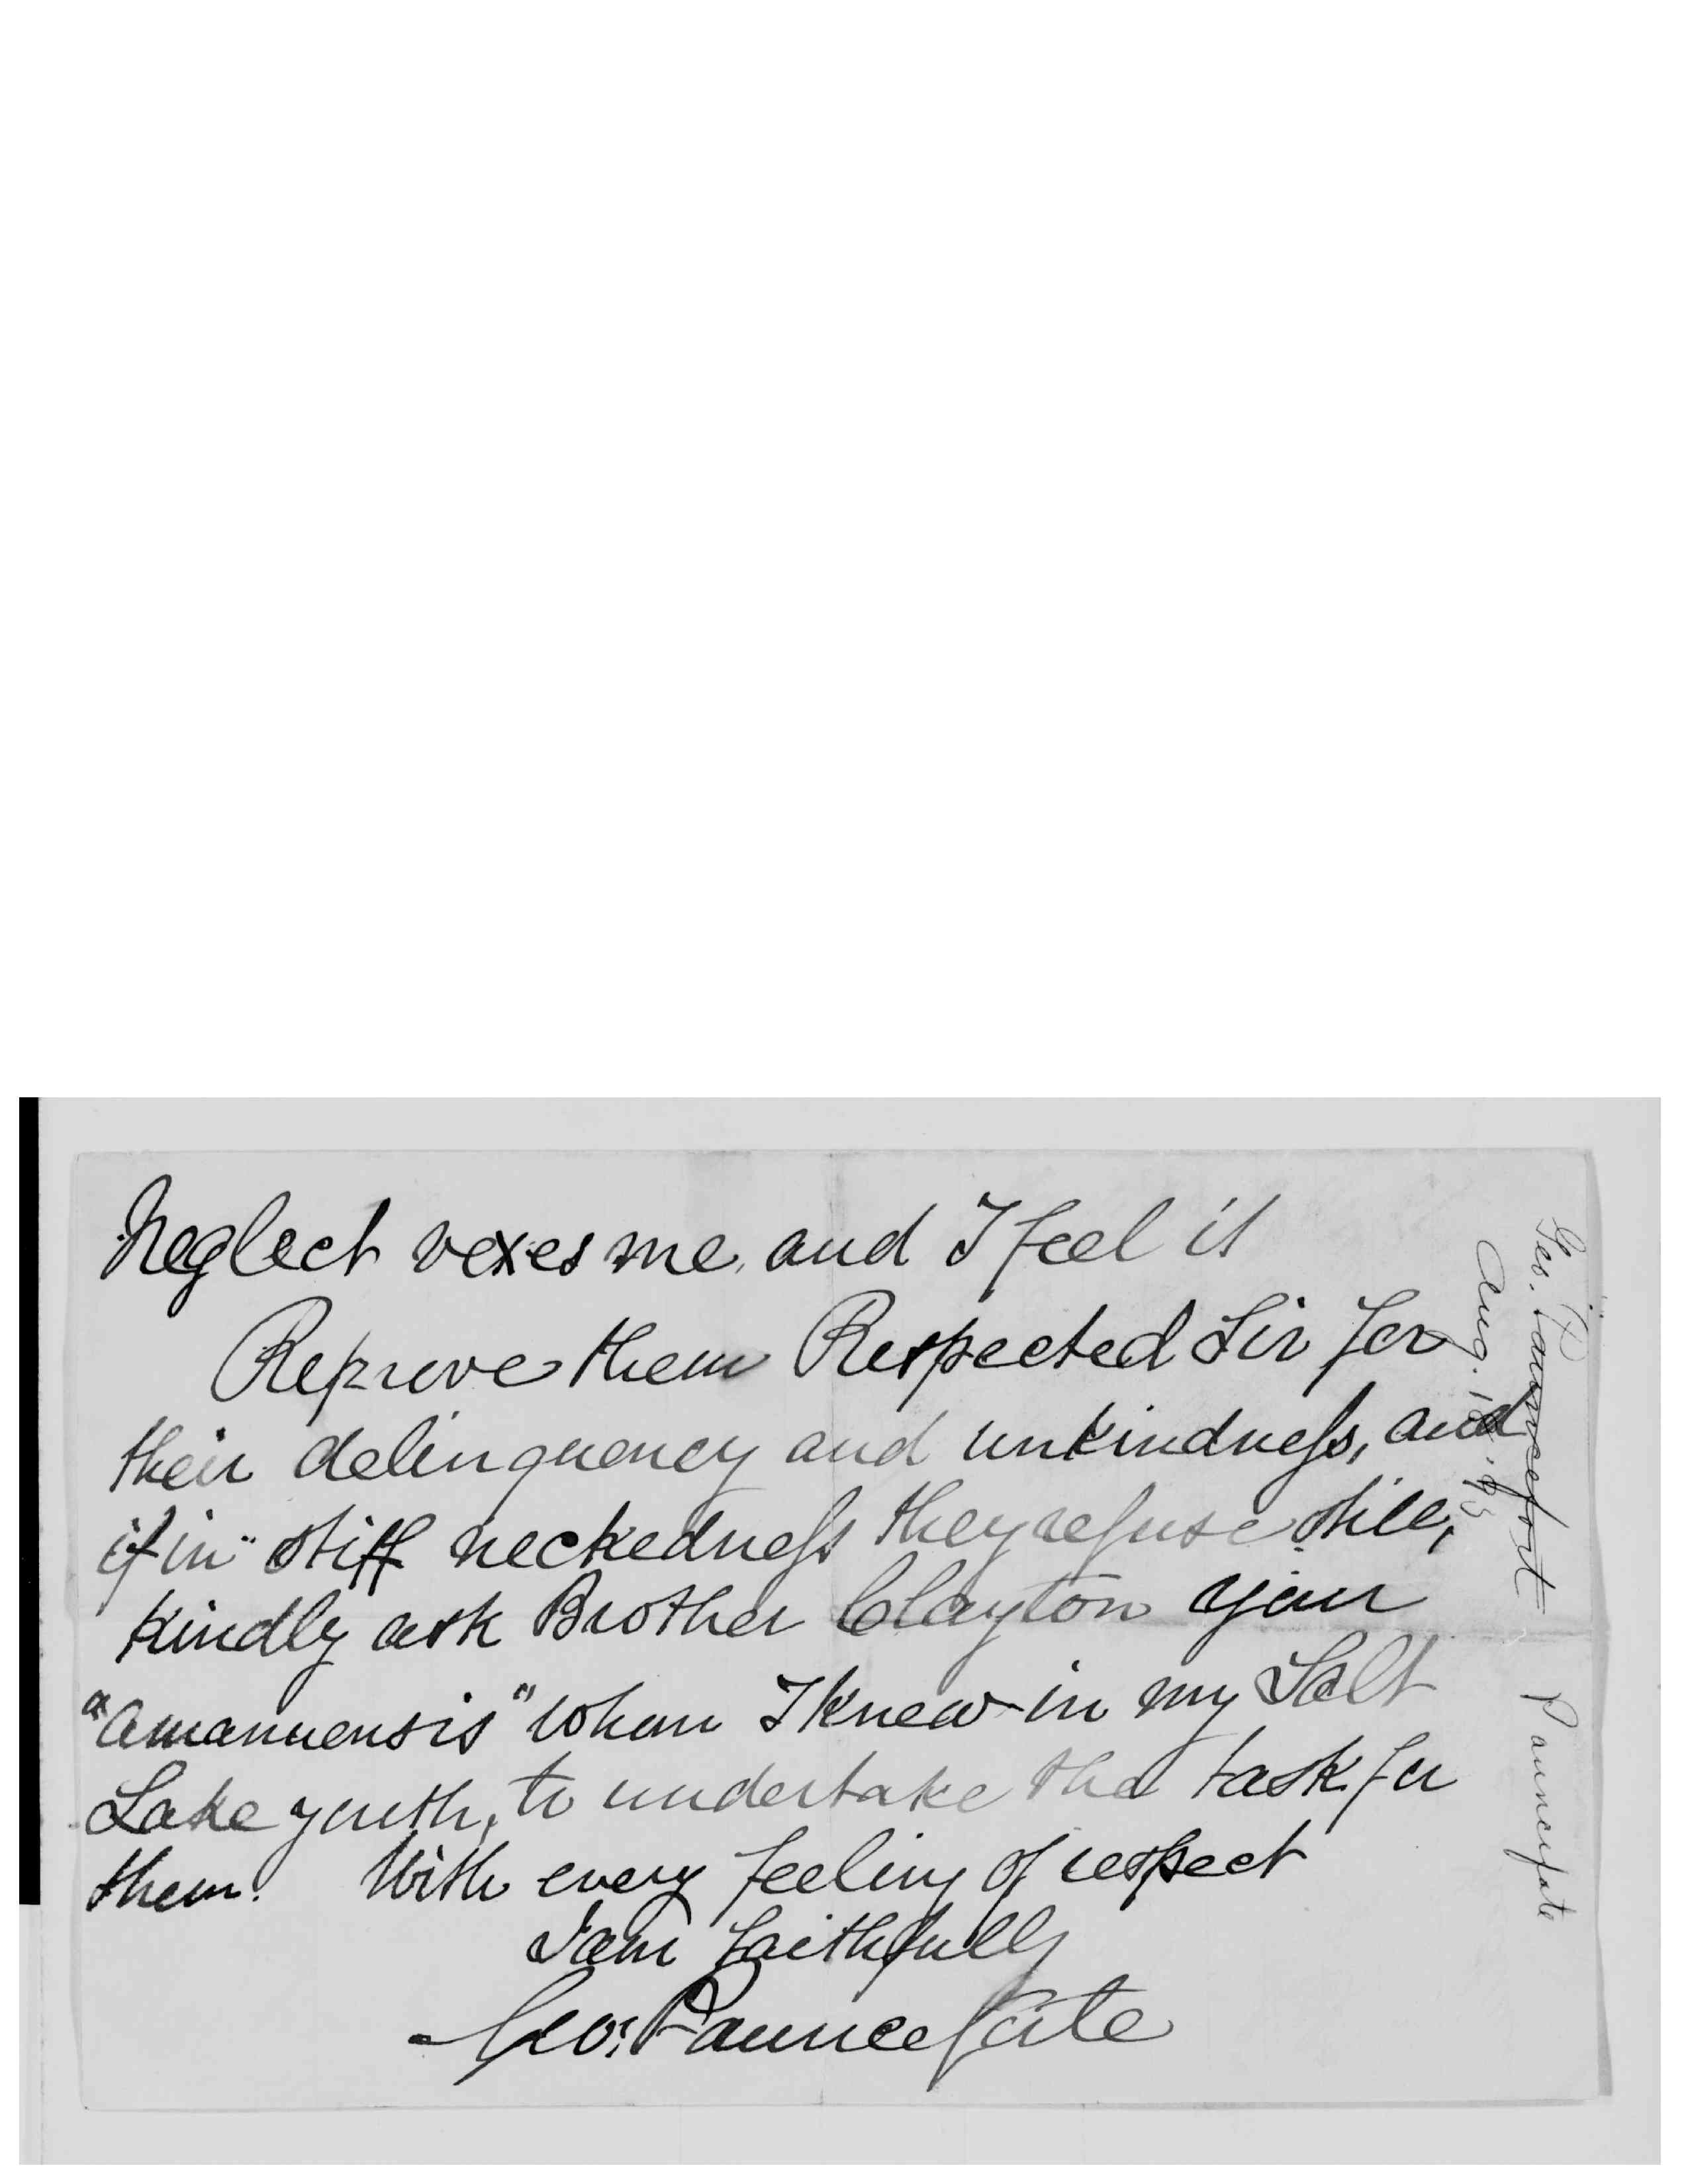 Neglect vexes me, and I feel it
Reprove them Respected Sir for
their delinquency and unkindness, and
if in "stiff neckedness they refuse still,
kindly ask Brother Clayton your
"amanuensis" whom I knew in my Salt
Lake youth, to undertake the task for
them. With every feeling of respect
I am faithfully
Geo. Pauncefote
Geo. Pauncefort Pauncefote
Aug. 18.